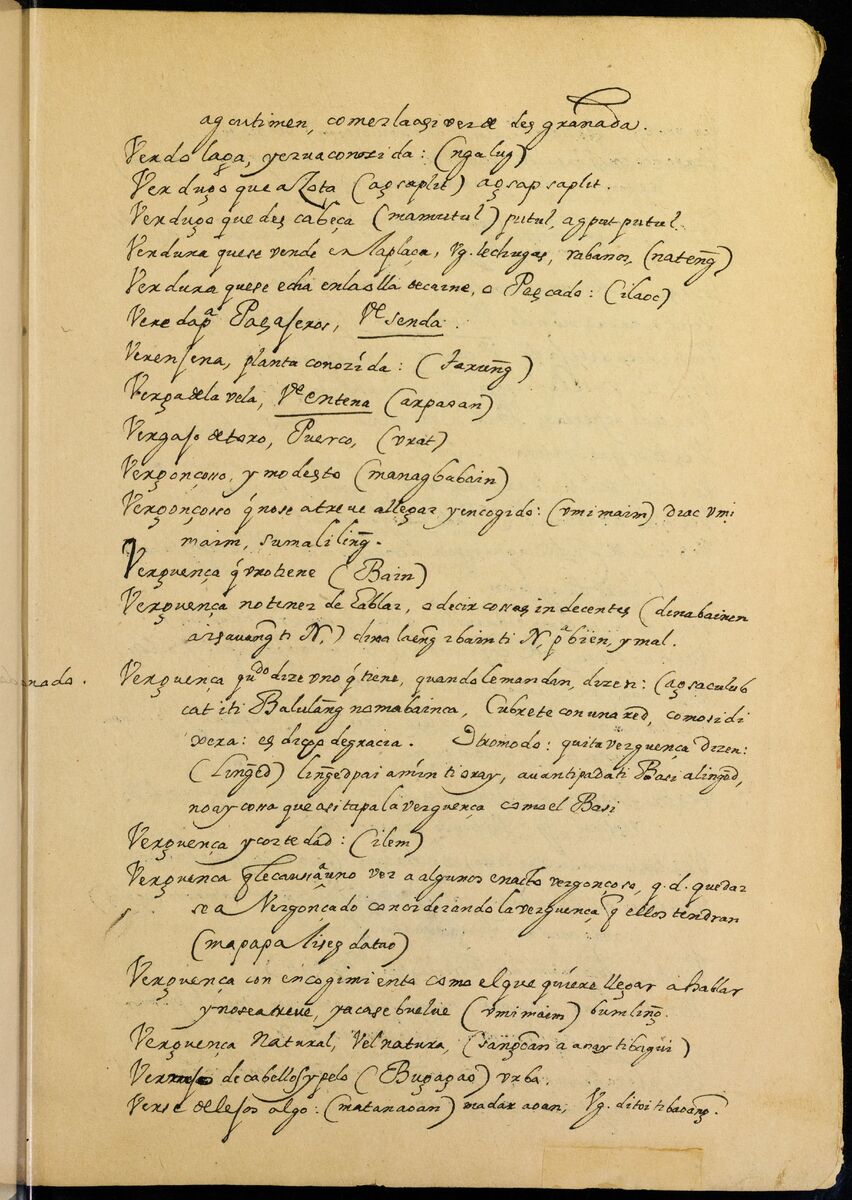 agcutimen, comerlaasi verde des granada.
Verdolaga, yerua conozida: (ngalug)
Verdugo que aZota (agsaplit) agsapsaplit.
Verdugo que des cabeça (mamutul) putul, agputputul.
Verdura quese vende en laplaça, Vg. lechugas, rabanos, (nateng̃)
Verdura quese echa enlaolla decarne, o Pescado: (ilaoc)
Veredapª Pasaseros, Vᵈᵉ senda.
Verensena, planta conozída: (Tarung̃)
Vergadela vela, Vᵈᵉ entena (arpaoan)
Vergaso de toro, Puerco, (vrat)
Vergonçosso, y modesto (managbabain)
Vergonçosso q́ nose atreue allegar yencogido: (vmimaim) diac vmi
maim, sumaliling̃.
Verguença q́ vno tiene (Bain)
Verguença notener de hablar, o decir cossas indecentes (dinabainen
a isauang̃ ti N,) dina laeng̃ ibainti N, pª bien, y mal.
nado.
Verguença quᵈᵒ dize vno q́ tiene, quando lemandan, dizen: (agsaculub
cat iti Balulang̃ nomabainca, Cubrete con una red, como si di
xera: es dicho degracia. Otromodo: quita verguença dizen:
(ling̃ed) ling̃edpai amin tioray, auantipadati Basi aling̃ed,
noay cossa que asi tapa la verguença como el Basi
Verguença y cortedad: (ilem)
Verguença q̃ lecausaªuno ver a algunos enacto vergonçoso, q. d. quedar
se a Vergonçado considerando la verguença q̃ ellos tendran
(mapapaliseg datao)
Verguença con encogimiento como elque quiere llegar a hablar
ynoseatreue, yacase buelue (vmimaim) bumling̃.
Verguença Natural, Vel natura, (sang̃oan a anay tibagui)
de cabellos y pelo (Bugagao) vrba.
Verse delesos algo: (matanaoan) madaxaoan, Vg. ditoi tibaoang̃.